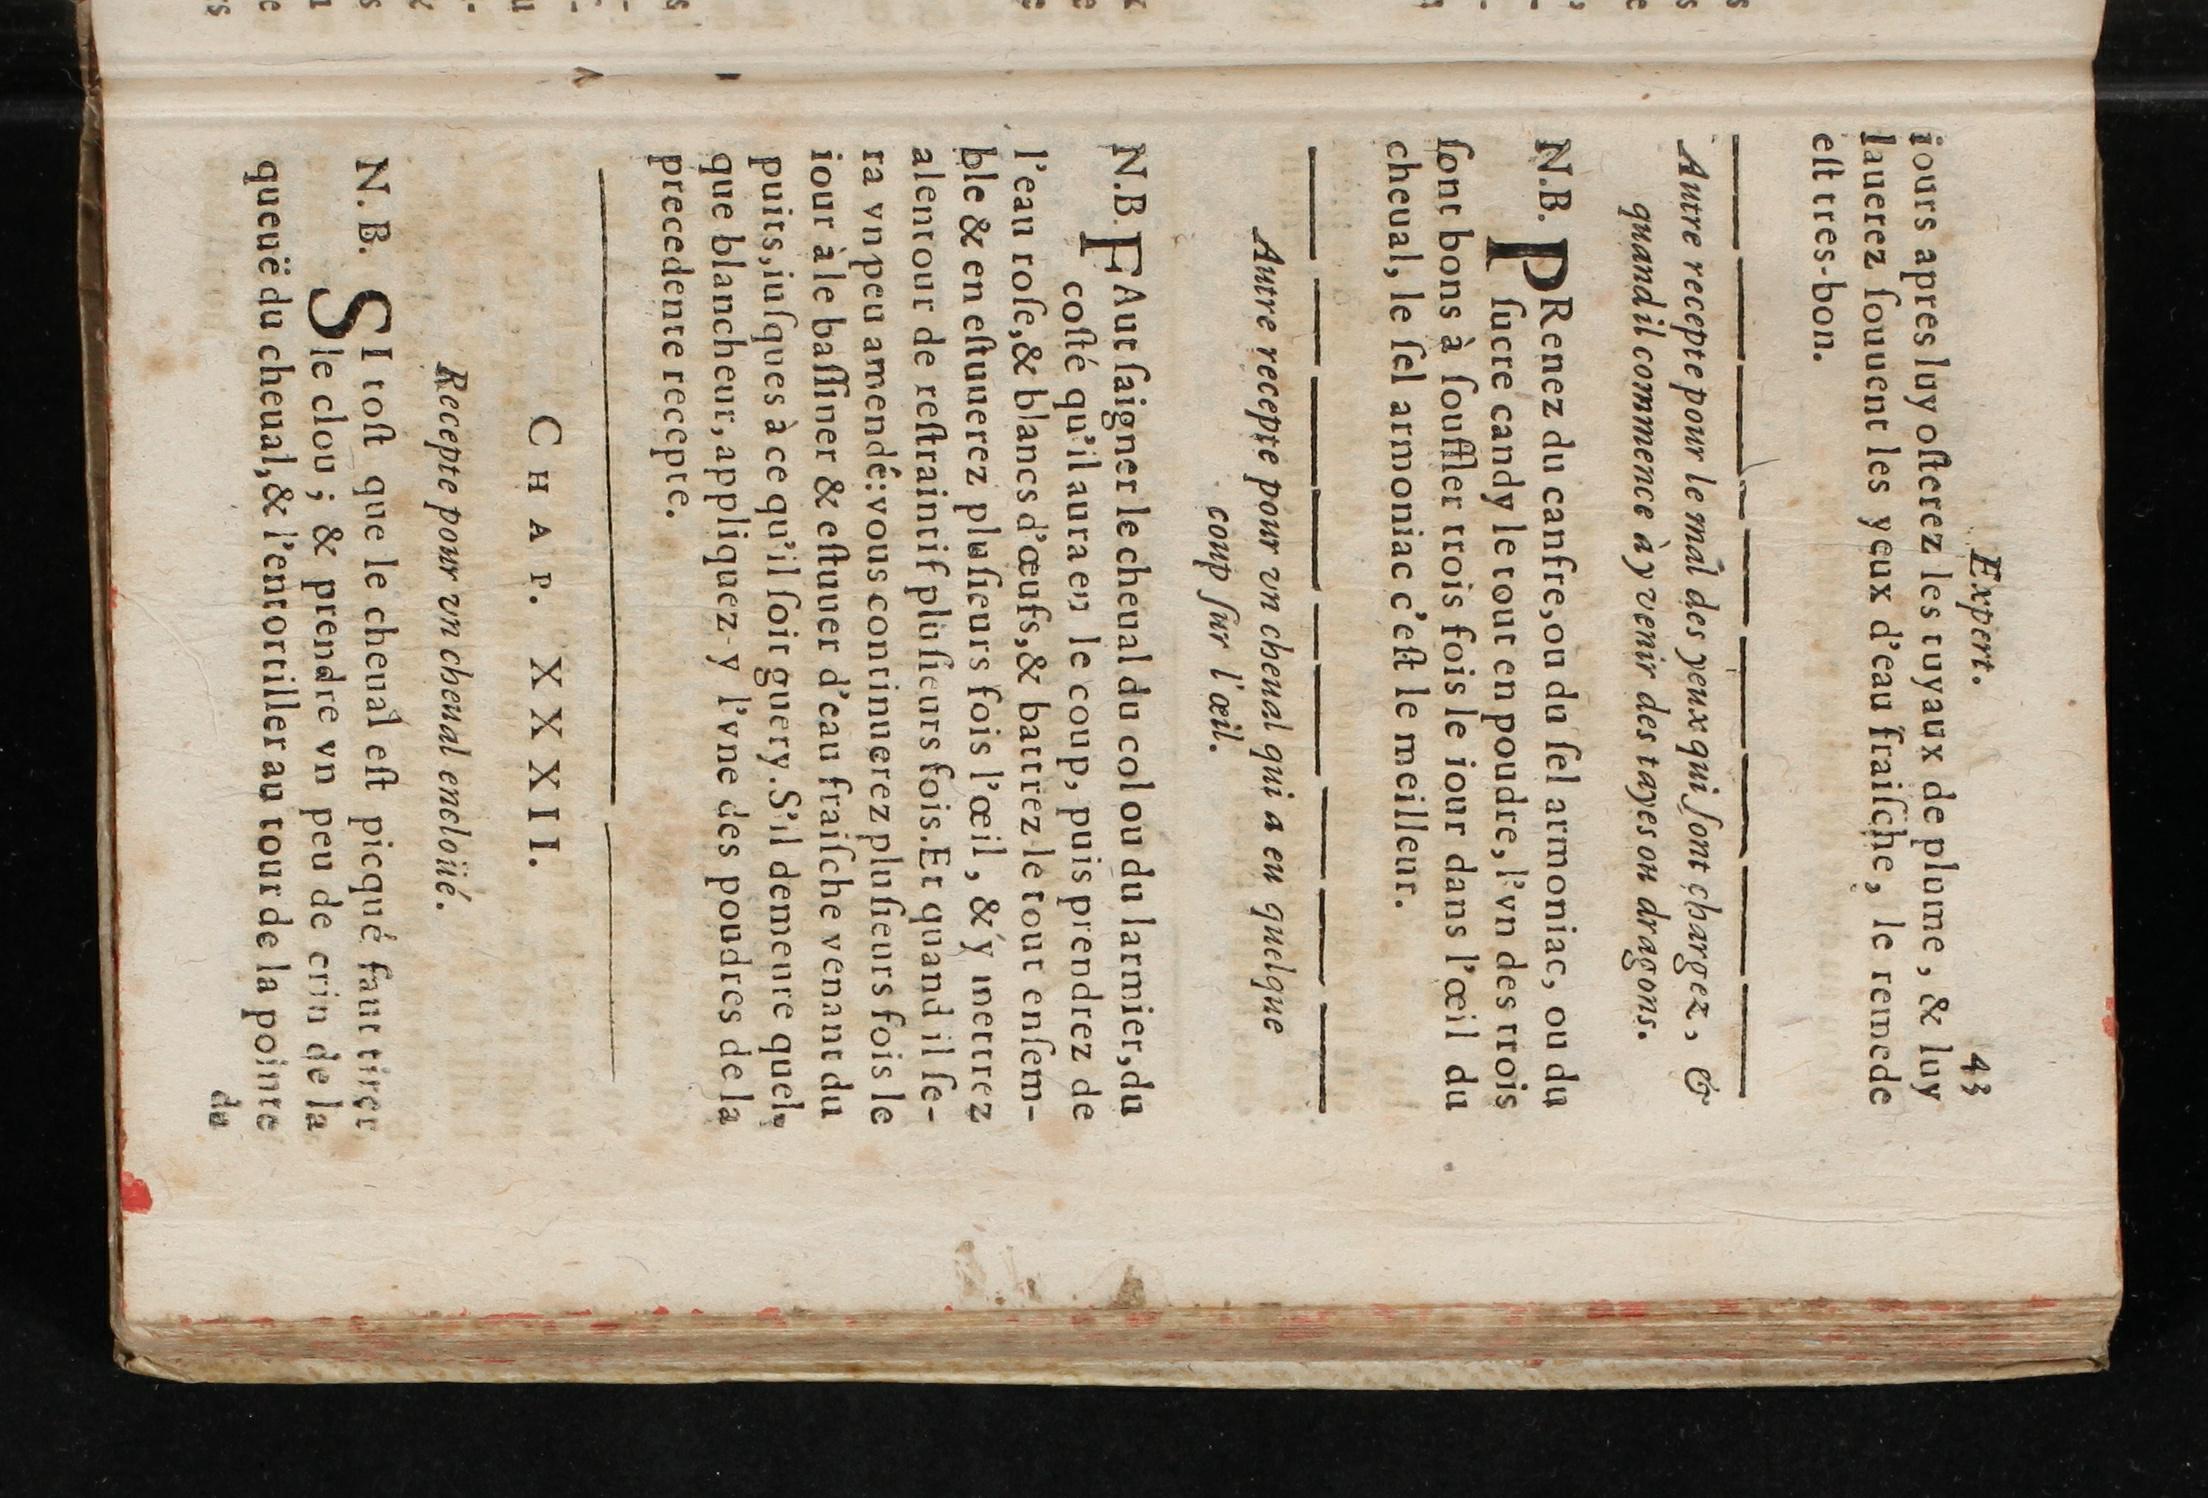 Expert. 43
iours apres luy osterez les tuyaux de plume, & luy
lauerez ſouuent les yeux d'eau fraiſche, le remede
eſt tres-bon.
Autre recepte pour le mal des yeux qui ſont chargez, &
quand il commence à y venir des tayes ou dragons.
N.B. PRenez du canfre, ou du ſel armoniac, ou du
ſucre candy le tout en poudre, l'vn des trois
ſont bons à ſouffler trois fois le iour dans l'œil du
cheual, le ſel armoniac c'eſt le meilleur.
Autre recepte pour vn cheual qui a eu quelque
coup ſur l'œil.
N.B. FAut ſaigner le cheual du col ou du larmier, du
coſté qu'il aura en le coup, puis prendrez de
l'eau roſe, & blancs d'œufs, & battrez le tout enſem-
ble & en eſtuuerez pluſieurs fois l'œil, & y mettrez
alentour de reſtraintif pluſieurs fois. Et quand il ſe-
ra vn peu amendé: vous continuerez pluſieurs fois le
iour à le baſſiner & eſtuuer d'eau fraiſche venant du
puits, iuſques à ce qu'il ſoit guery. S'il demeure quel-
que blancheur, appliquez-y l'vne des poudres de la
precedente recepte.
CHAP. XXXII.
Recepte pour vn cheual encloüé.
N. B. SI toſt que le cheual eſt picqué faut tirer
le clou; & prendre vn peu de crin de la
queuë du cheual, & l'entortiller au tour de la pointe
du